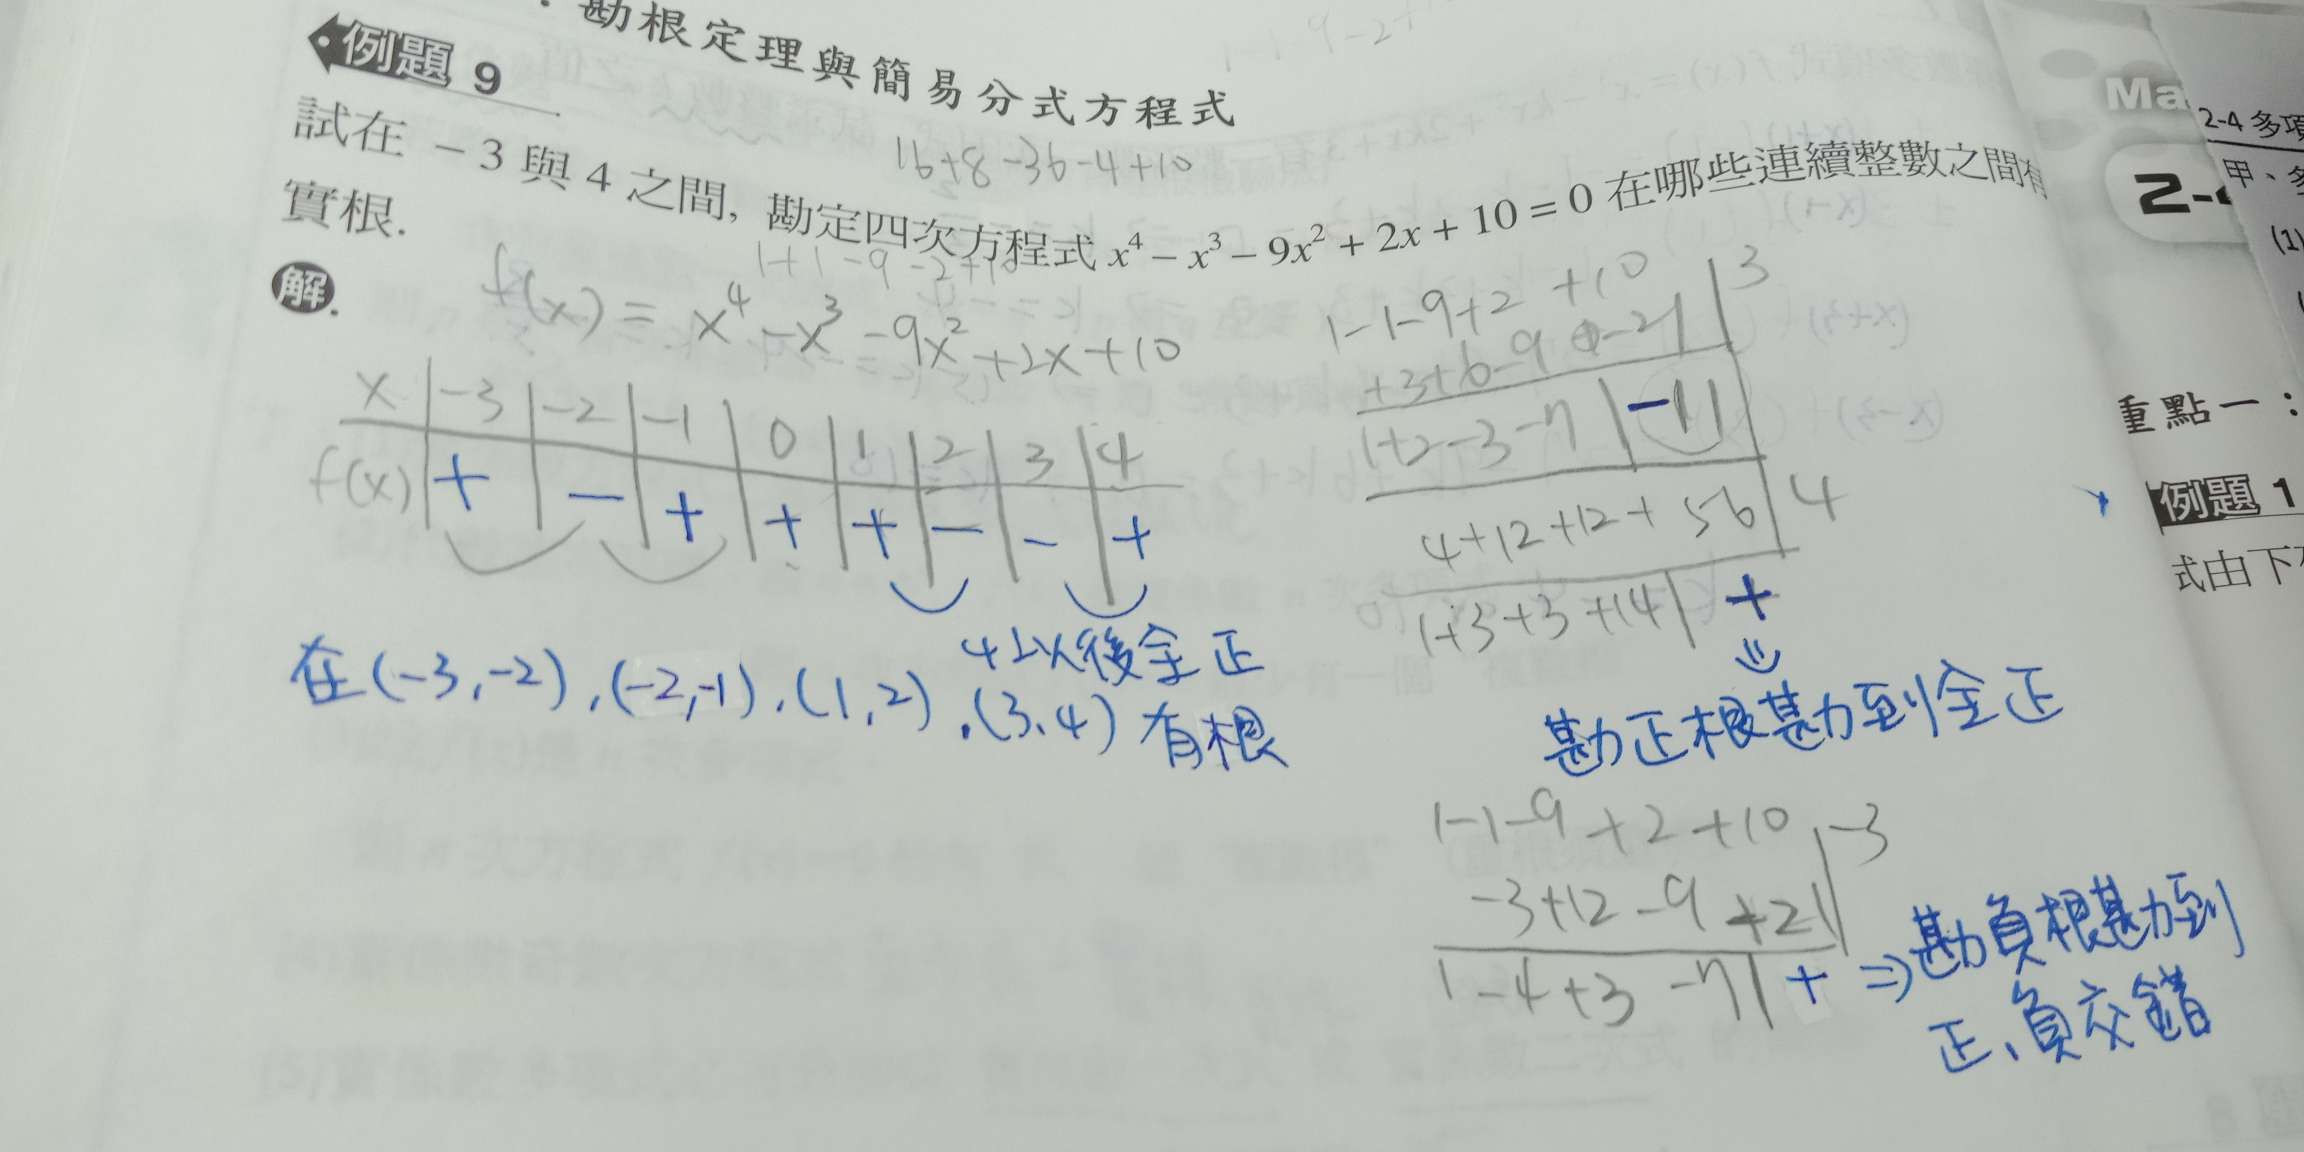 勘根定理與簡易分式方程式
例題 9
16+8-36-4+10
試在 -3 與 4 之間, 勘定四次方程式 x⁴ - x³ - 9x² + 2x + 10 = 0 在哪些連續整數之間有
實根.
1+1-9-2+10
解.
f(x) = x⁴ - x³ - 9x² + 2x + 10
x | -3 | -2 | -1 | 0 | 1 | 2 | 3 | 4
f(x) | + | - | + | + | + | - | - | +
4以後全正
在(-3,-2),(-2,-1),(1,2),(3,4)有根
1-1-9+2+10 | 3
+3+6-9-21
1+2-3-7 | -11
4+12+12+56 | 4
1+3+3+14 | +
⇓
勘正根勘到全正
1-1-9+2+10 | -3
-3+12-9+21
1-4+3-7 | + ⇒勘負根勘到
正、負交錯
Ma
2-4 多項
甲、多
2-4
(1)
重點一：
例題 1
式由下